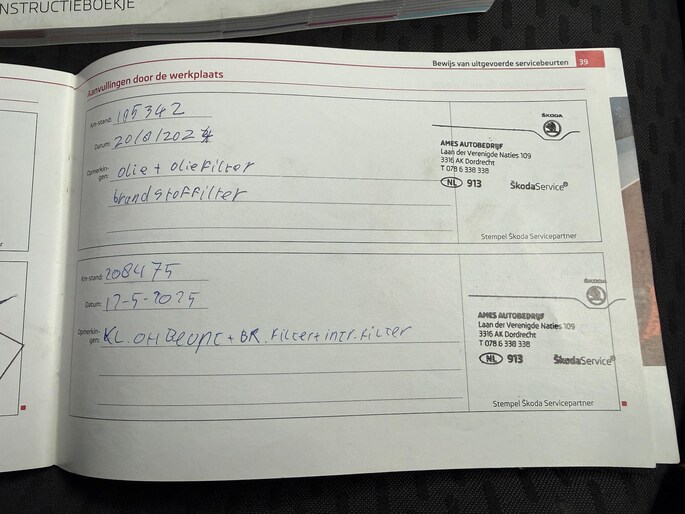 NSTRUCTIEBOEKJE
Bewijs van uitgevoerde servicebeurten 39
Aanvullingen door de werkplaats
Km-stand: 195342
Datum: 20/8/2024
Opmerkin-
gen: olie + oliefilter
brandstoffilter
ŠKODA
AMES AUTOBEDRIJF
Laan der Verenigde Naties 109
3316 AK Dordrecht
T 078 6 338 338
NL 913 ŠkodaService
Stempel Škoda Servicepartner
Km-stand: 208475
Datum: 12-5-2025
Opmerkin-
gen: KL. OH Beurt + BR. Filter + intr. Filter
ŠKODA
AMES AUTOBEDRIJF
Laan der Verenigde Naties 109
3316 AK Dordrecht
T 078 6 338 338
NL 913 ŠkodaService
Stempel Škoda Servicepartner